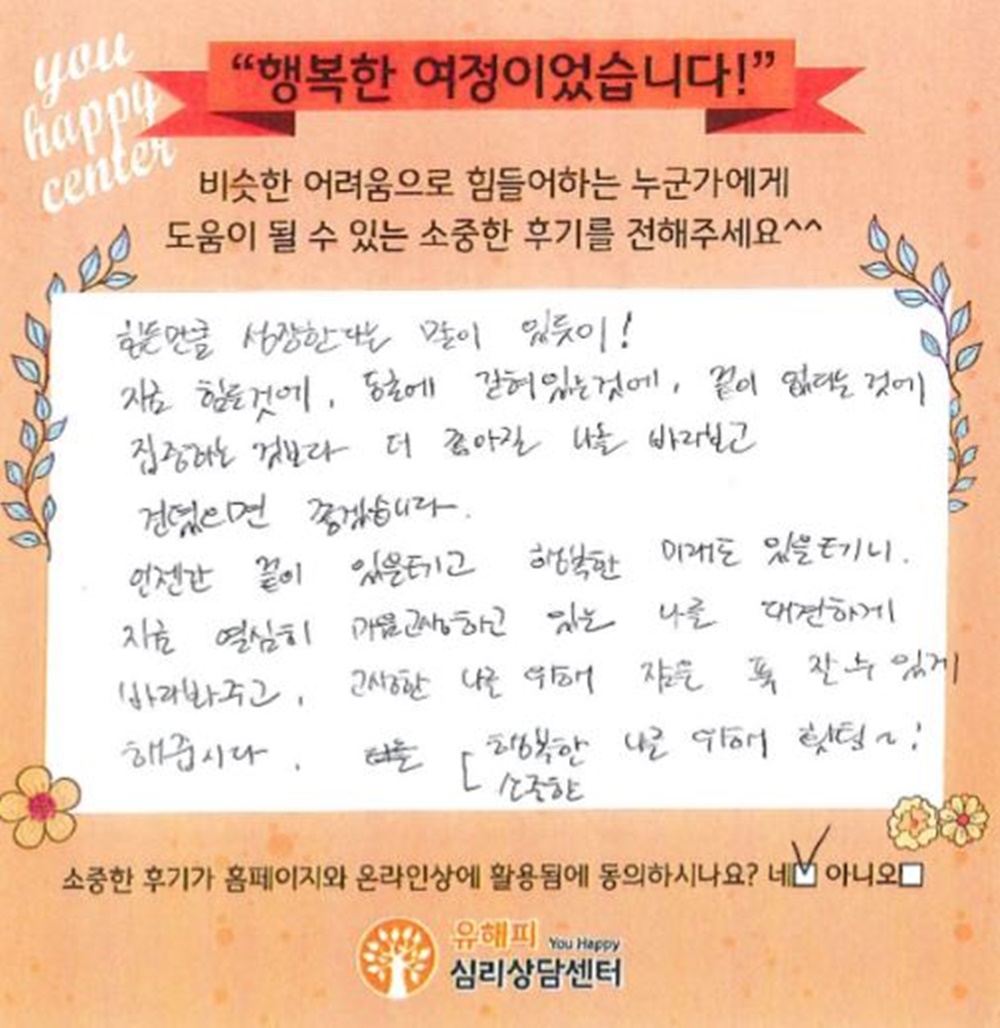 you
happy
center
“행복한 여정이었습니다!”
비슷한 어려움으로 힘들어하는 누군가에게
도움이 될 수 있는 소중한 후기를 전해주세요^^
힘든만큼 성장한다는 말이 있듯이!
지금 힘든것에, 동굴에 갇혀있는것에, 끝이 없다는 것에
집중하는 것보다 더 좋아질 나를 바라보고
견뎠으면 좋겠습니다.
언젠간 끝이 있을터이고 행복한 미래도 있을터이니.
지금 열심히 마음고생하고 있는 나를 대견하게
바라봐주고, 고생한 나를 위해 잠을 푹 잘 수 있게
해줍시다. [행복한 나를 위해 힛팅~!
소중한
소중한 후기가 홈페이지와 온라인상에 활용됨에 동의하시나요? 네☑ 아니오☐
유해피 You Happy
심리상담센터